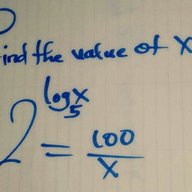 ind the value of x
2^log_5 x = 100/x